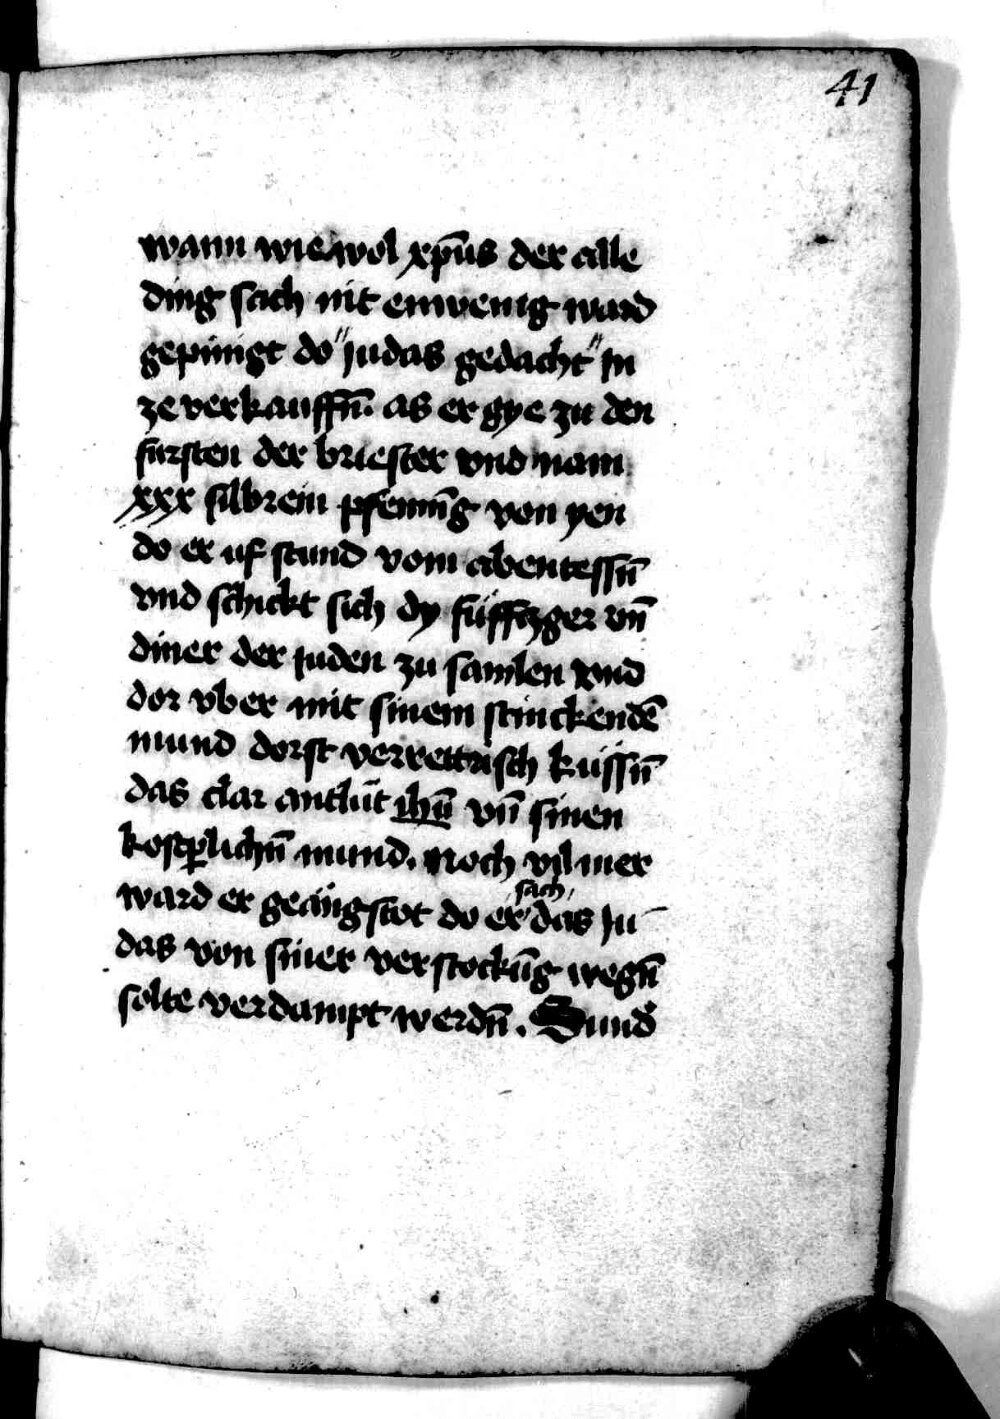 41
wann wie wol xp̄us der alle
ding sach nit einwenig ward
gepinigt do" judas gedacht" jn
ze verkauffn̄. as er gye zu den
fursten der briester vnd nam
xxx silbrein pfennīg von yen
do er uf stund vom abentessn̄
vnd schickt sich dy füffczger vn̄
diner der juden zu samlen vnd
dor vber mit sinem stinckendē
mund dorst verrettrisch küssn̄
das clar antlüt ih̄u vn̄ sinen
kostperlichn̄ mund. Noch vil mer
ward er geängstot do er sach das Ju
das von siner verstockūg wegn̄
solte verdampt werdn̄. Sund